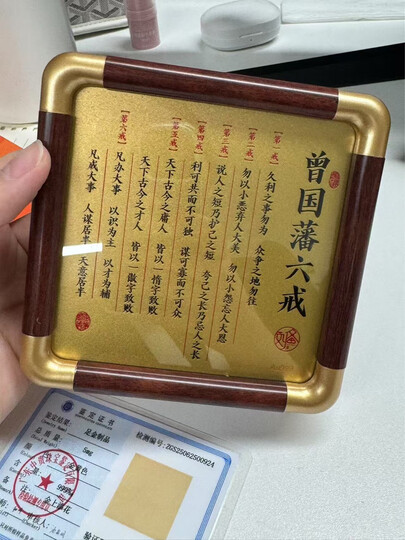 曾国藩六戒
【第一戒】
久利之事勿为 众争之地勿往
【第二戒】
勿以小恶弃人大美 勿以小怨忘人大恩
【第三戒】
说人之短乃护己之短 夸己之长乃忌人之长
【第四戒】
利可共而不可独 谋可寡而不可众
【第五戒】
天下古今之庸人 皆以一惰字致败
天下古今之才人 皆以一傲字致败
【第六戒】
凡办大事 以识为主 以才为辅
凡成大事 人谋居半 天意居半
鉴定证书
鉴定结果: 足金制品
检测编号:ZGS25062500924
5mg